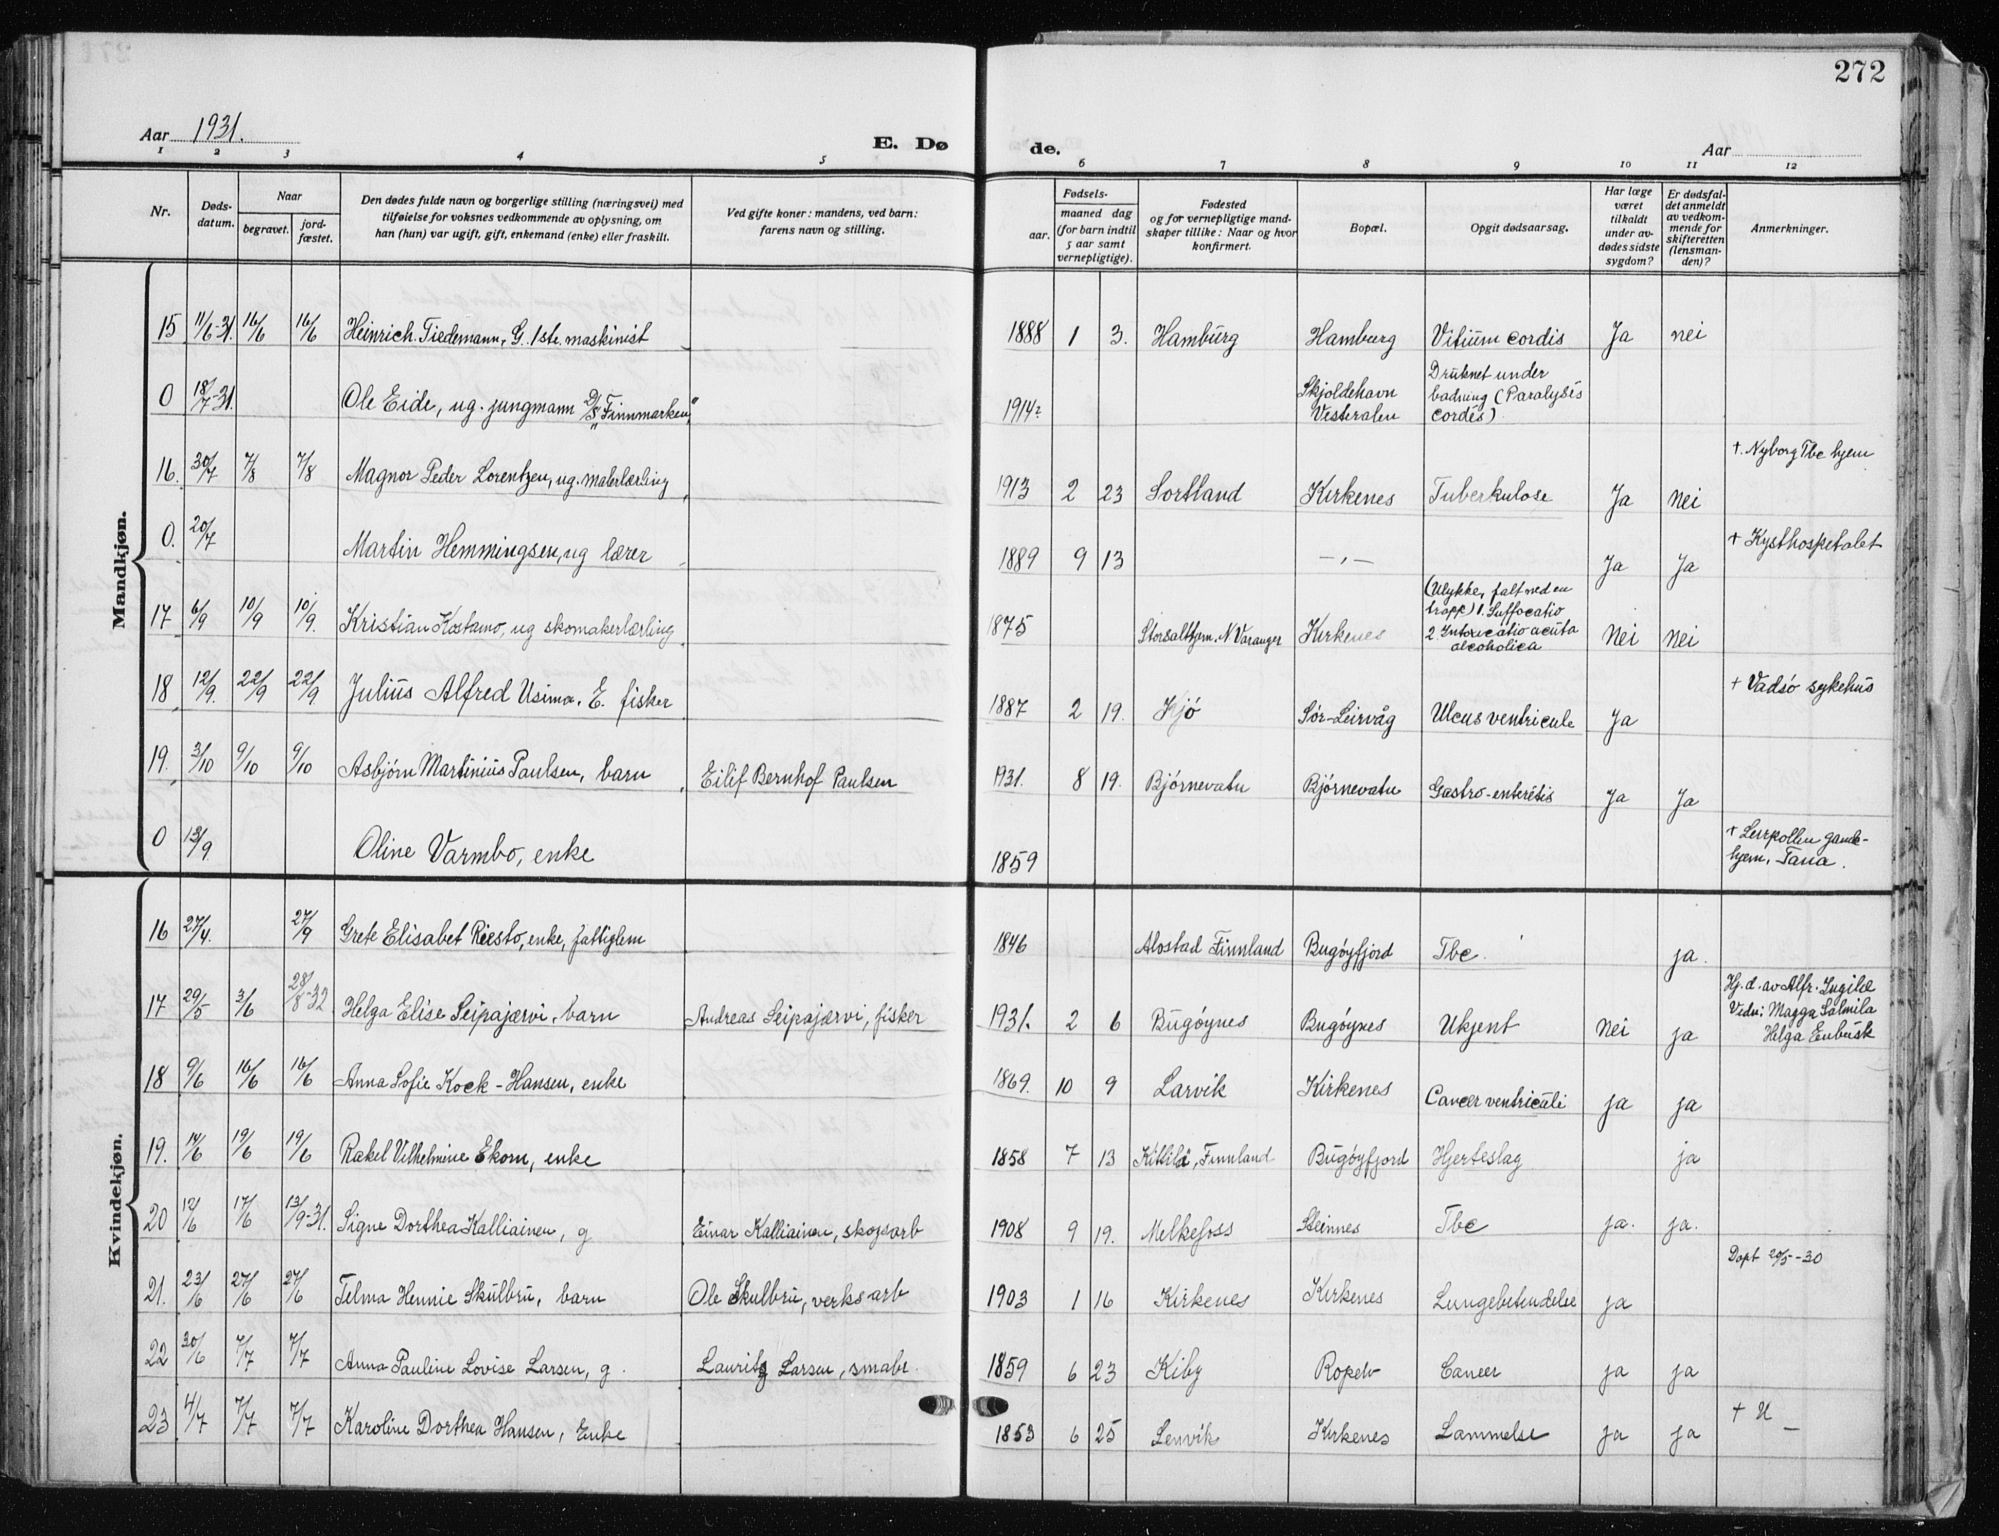 272
Aar 1931.
E. Døde.
Aar
1 2 3 4 5 6 7 8 9 10 11 12
Nr.
Døds-
datum.
Naar
begravet.
jord-
fæstet.
Den dødes fulde navn og borgerlige stilling (næringsvei) med
tilføielse for voksnes vedkommende av oplysning, om
han (hun) var ugift, gift, enkemand (enke) eller fraskilt.
Ved gifte koner: mandens, ved barn:
farens navn og stilling.
Fødsels-
aar.
maaned dag
(for barn indtil
5 aar samt
vernepligtige).
Fødested
og for vernepligtige mand-
skaper tillike: Naar og hvor
konfirmert.
Bopæl.
Opgit dødsaarsag.
Har læge
været
tilkaldt
under av-
dødes sidste
sygdom?
Er dødsfal-
det anmeldt
av vedkom-
mende for
skifteretten
(lensman-
den)?
Anmerkninger.
Mandkjøn.
15 11/6-31. 16/6 16/6 Heinrich Tiedemann, G. 1ste maskinist 1888 1 3. Hamburg Hamburg Vitium cordis Ja nei
0 18/7-31. Ole Eide, ug. jungmann D/S "Finnmarken" 1914? Skjoldehavn Vesteralen Druknet under badning (Paralysis cordis)
16. 30/7 7/8 7/8 Magnor Peder Lorentzen, ug. malerlærling 1913 2 23 Sortland Kirkenes Tuberkulose Ja Nei + Nyborg Tbc hjem
0. 20/7 Martin Hemmingsen, ug lærer 1889 9 13 —,— Ja Ja + Kysthospitalet
17 6/9 10/9 10/9. Kristian Kostamo, ug skomakerlærling 1875 Kirkenes (Ulykke, falt ned en trapp) 1. Suffocatio 2 Intoxicatio acuta alcoholica Nei Nei
N Varanger
18 12/9. 22/9 22/9 Julius Alfred Usima. E. fisker 1887 2 19. Kjø Sør-Leirvåg Ulcus ventricule Ja + Vadsø sykehus
19. 3/10 9/10 9/10 Asbjørn Martinius Paulsen, barn Eilif Bernhof Paulsen 1931. 8 19. Bjørnevatn Bjørnevatn Gastro-enteritis Ja Ja
0 13/9. Oline Varmbo, enke 1859 + Leirpollen gamle- hjem, Tana.
Kvindekjøn.
16 27/4. 27/9 Grete Elisabet Riesto, enke, fattiglem 1846 Finnland Bugøyfjord Tbc. ja.
17 29/5 3/6 28/8-32 Helga Elise Seipajærvi, barn Andreas Seipajærvi, fisker 1931. 2 6 Bugøynes Bugøynes Ukjent Nei ja Hj. d. av Alfr. Ingilæ Vidn: Magga Salmila Helga Enbusk
18 9/6 16/6 16/6 Anna Sofie Kock-Hansen, enke 1869. 10 9 Larvik Kirkenes Cancer ventriculi ja ja
19. 14/6 19/6 19/6 Rakel Vilhelmine Ekorn, enke 1858 7 13 Kittilä, Finnland Bugøyfjord Hjerteslag ja
20 12/6 17/6 13/9-31. Signe Dorthea Kalliainen, g Einar Kalliainen, skogsarb 1908 9 19. Melkefoss Steinnes Tbc ja. ja.
21. 23/6 27/6 27/6 Telma Hennie Skulbru, barn Ole Skulbru, verksarb 1903 1 16 Kirkenes Kirkenes Lungebetendelse ja Døpt 20/5-30
22 30/6 7/7 7/7 Anna Pauline Lovise Larsen, g. Lauritz Larsen, småbr. 1859 6 23 Kiby Ropelv Cancer ja ja
23 4/7 7/7 7/7 Karoline Dorthea Hansen, Enke 1853 6 25 Lenvik Kirkenes Lammelse ja ja + U —